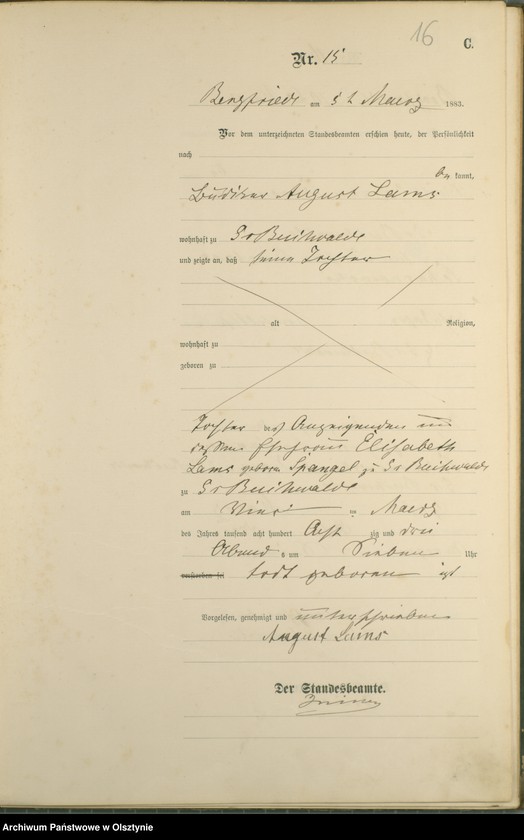 16
C.
Nr. 15
Bergfriede am 5t Maerz 1883.
Vor dem unterzeichneten Standesbeamten erschien heute, der Persönlichkeit
nach
be kannt,
Büdner August Lams
wohnhaft zu Gr Buchwalde
und zeigte an, daß seine Tochter
alt Religion,
wohnhaft zu
geboren zu
Tochter des Anzeigenden und
dessen Ehefrau Elisabeth
Lams geborene Spangel zu Gr Buchwalde
zu Gr Buchwalde
am ten Maerz
des Jahres tausend acht hundert Acht zig und drei
Abend s um Sieben Uhr
verstorben sei todt geboren ist
Vorgelesen, genehmigt und unterschrieben
August Lams
Der Standesbeamte.
Archiwum Państwowe w Olsztynie